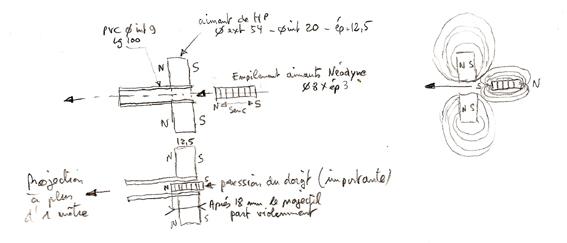 aimant de HP
Ø ext 54 - Ø int 20 - ép=12,5
PVC Ø int 9
lg 100
N S
Empilement aimants Néodyne
Ø8 x ép 3
N S
N S
N S
S N
N S
12,5
N S
pression du doigt (importante)
Projection
à plus
d'1 mètre
Après 18 mm le projectil
part violemment
N S